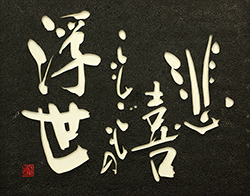 悲喜
こもごもの
浮世